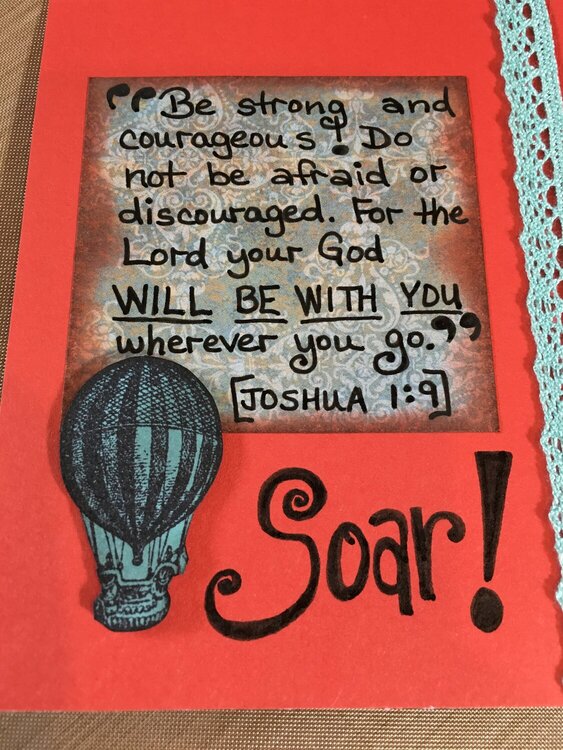 “Be strong and
courageous! Do
not be afraid or
discouraged. For the
Lord your God
WILL BE WITH YOU
wherever you go.”
[JOSHUA 1:9]
Soar!